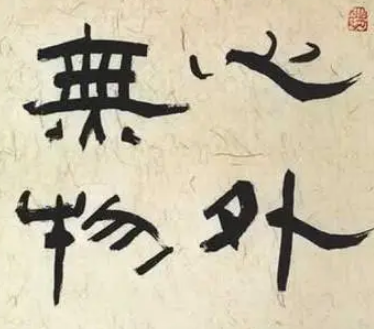 心外
無物